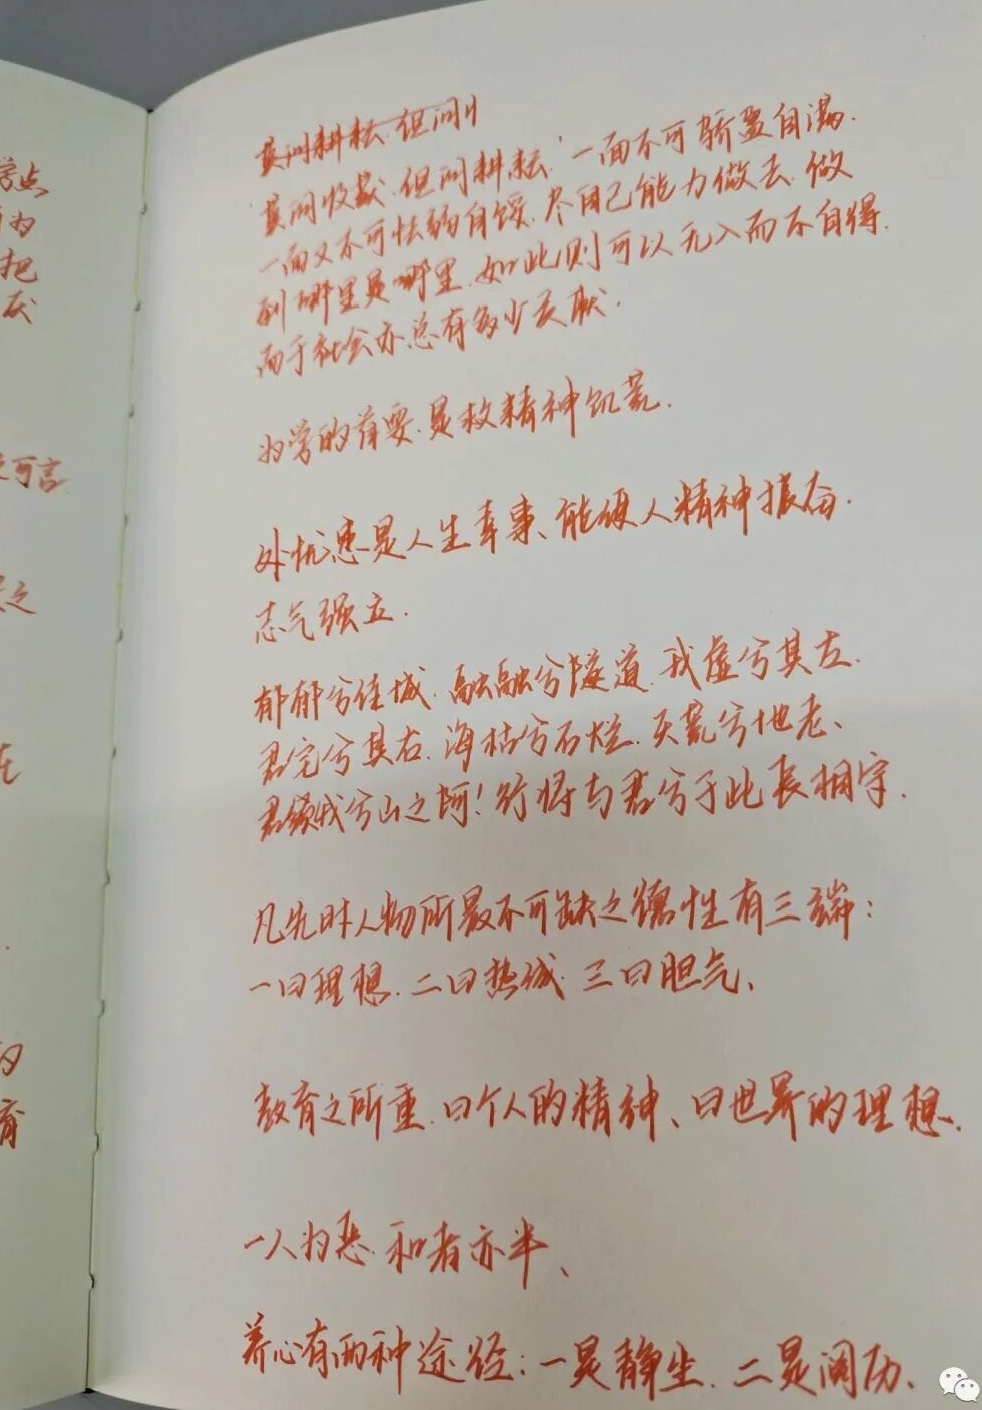 学点
为
把
灰
莫问耕耘.但问
"莫问收获.但问耕耘."一面不可骄盈自满.
一面又不可怯弱自馁.尽自己能力做去.做
到哪里是哪里.如此则可以无入而不自得.
而于社会亦总有多少贡献.
为学的首要.是救精神饥荒.
可言
处忧患是人生幸事、能使人精神振奋.
之
志气强立.
郁郁兮佳城.融融兮隧道.我虚兮其左.
君宅兮其右.海枯兮石烂.天荒兮地老、
君须我兮山之阿!行将与君兮于此长相守.
凡先时人物所最不可缺之德性有三端:
一曰理想.二曰热诚.三曰胆气、
育
教育之所重.曰个人的精神、曰世界的理想.
一人为恶.和者亦半、
养心有两种途径:一是静坐.二是阅历、